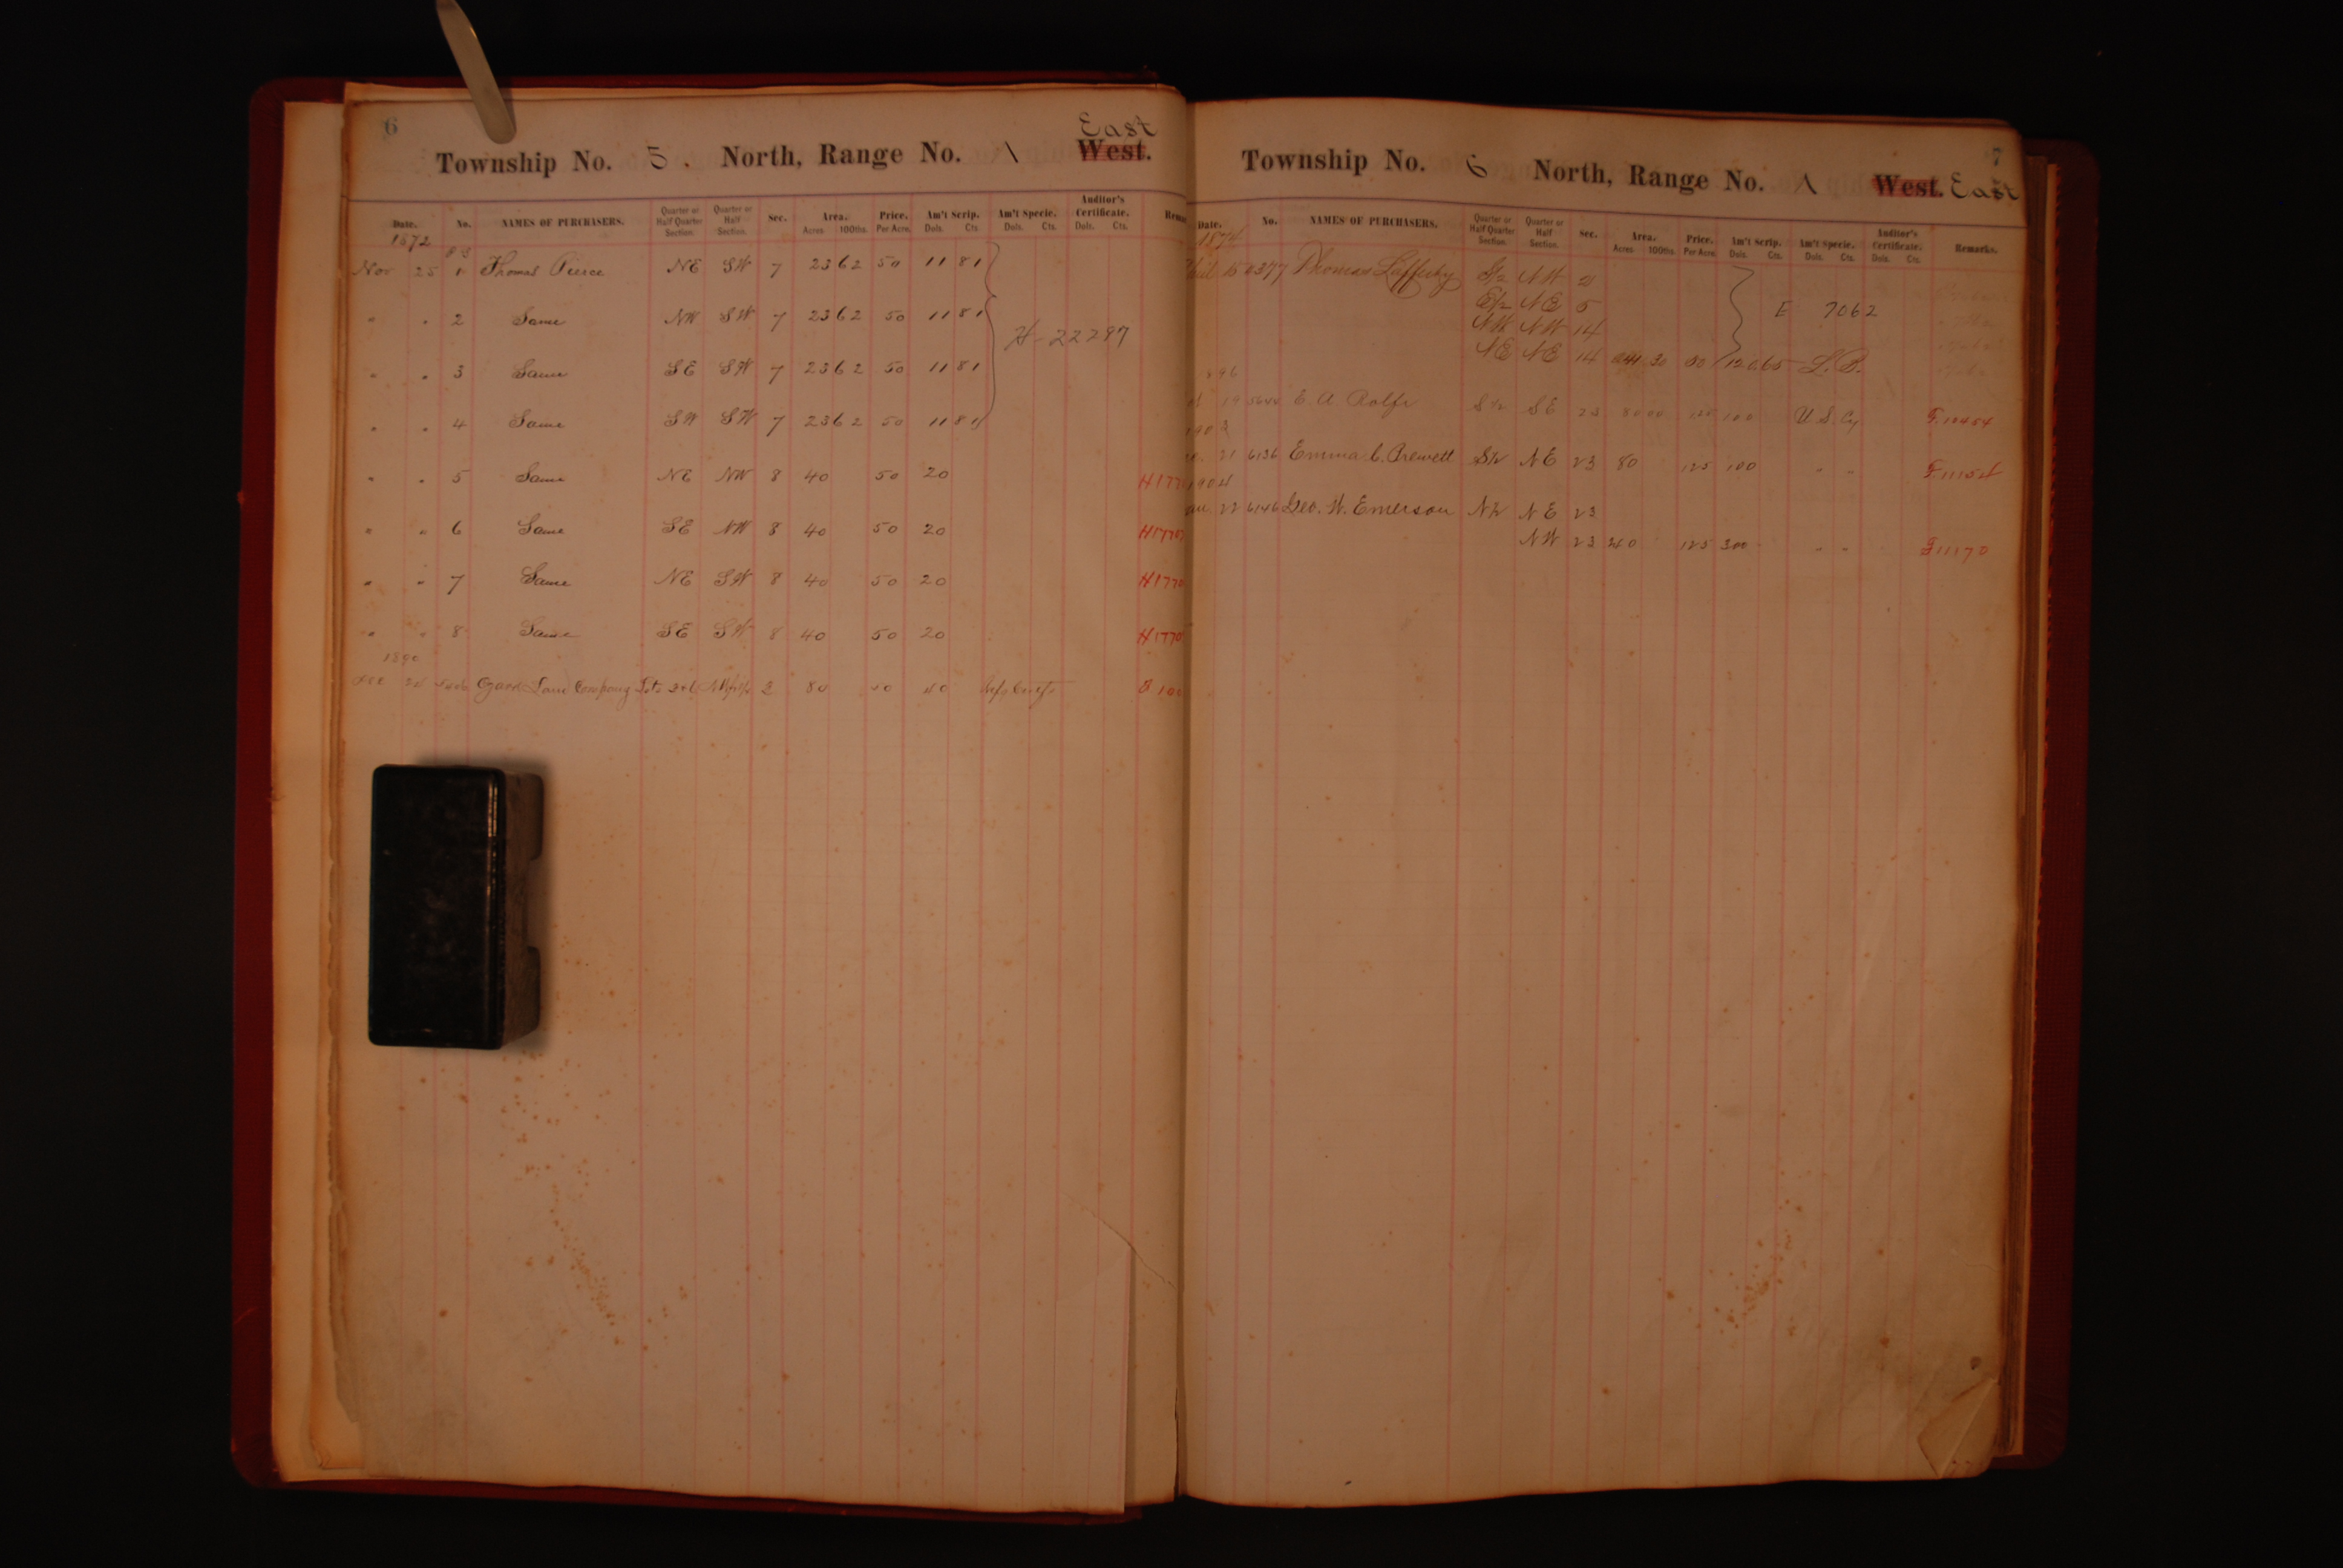 6
East
Township No. 5. North, Range No. 1 West.
Date. No. NAMES OF PURCHASERS. Quarter or Half Quarter Section. Quarter or Half Section. Sec. Area. Acres 100ths. Price. Per Acre. Am't Scrip. Dols. Cts. Am't Specie. Dols. Cts. Auditor's Certificate. Dols. Cts.
1872
Nov 25 1 Thomas Pierce NE SW 7 23 62 50 11 81
" " 2 Same NW SW 7 23 62 50 11 81
H 22297
" " 3 Same SE SW 7 23 62 50 11 81
" " 4 Same SW SW 7 23 62 50 11 81
" " 5 Same NE NW 8 40 50 20
" " 6 Same SE NW 8 40 50 20 H1770
" " 7 Same NE SW 8 40 50 20 H1770
" " 8 Same SE SW 8 40 50 20 H1770
1890
Land Company 2 80 50 40
7
Township No. 6 North, Range No. 1 West. East
Date. No. NAMES OF PURCHASERS. Quarter or Half Quarter Section. Quarter or Half Section. Sec. Area. Acres 100ths. Price. Per Acre. Am't Scrip. Dols. Cts. Am't Specie. Dols. Cts. Auditor's Certificate. Dols. Cts. Remarks.
1874
15 Thomas Lafferty NW
E½ NE 5 E 7062
NW NW 14
NE NE 14 50 120 65 L.B.
96
19 E A Rolfe S½ SE 23 80 00 125 100 U.S. Cy F. 10454
21 6136 Emma C. Prewett S½ NE 23 80 125 100 " " F. 11154
1904
22 6146 Geo. W. Emerson N½ NE 23
NW 23 240 125 300 " " F 11170